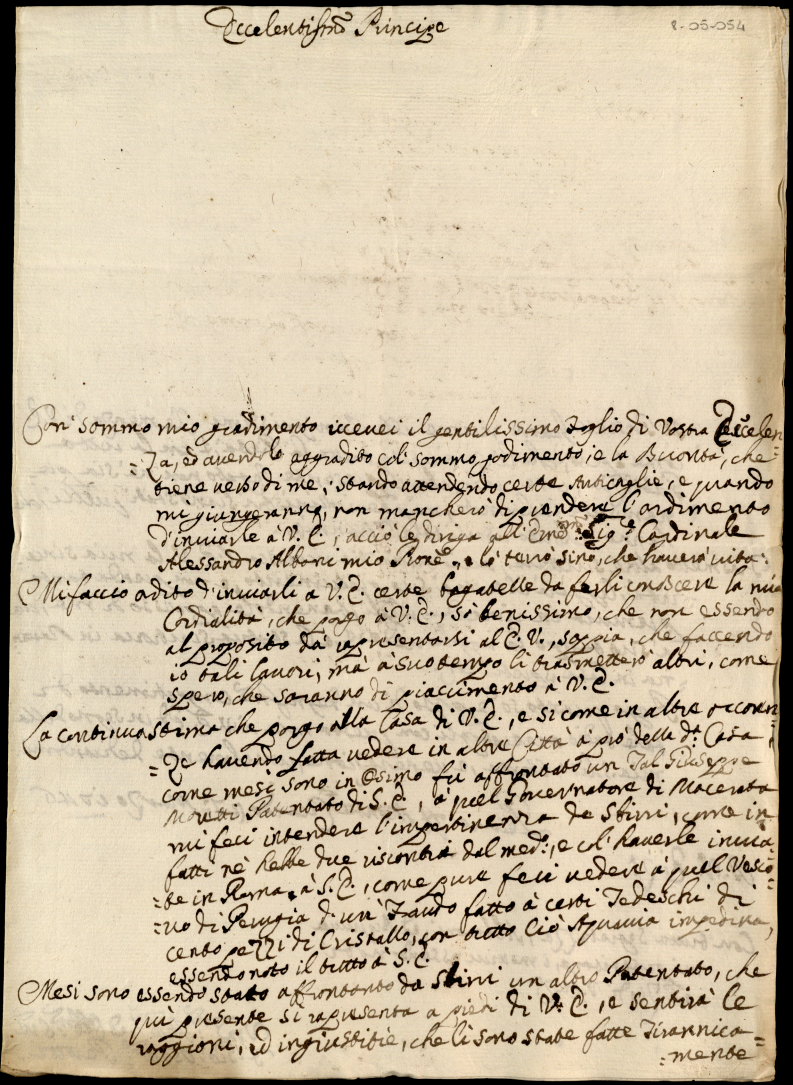 Eccelentissmo Principe
8-05-054
Con sommo mio gradimento riceuei il gentilissimo Foglio di Vostra Eccelen=
=Za, ed auendolo aggradito col' sommo godimento, e la Buontà, che
tiene uerso di me, stando attendendo certe Anticaglie, e quando
mi giungeranno, non mancherò di prendere l'ardimento
d'inuiarle à V. E., acciò le diriga all' Emo: Sigre. Cardinale
Alessandro Albani mio Prone., e lo terrò sino, che hauerò uita.
Mi faccio adito d'inuiarli a V. E. certe bagatelle da ferli conoscere la mia
Cordialità, che porgo à V. E., sò benissimo, che non essendo
al proposito da rapresentarsi al E. V., sappia, che faccendo
io tali lauori, mà à suo tempo li trasmetterò altri, come
spero, che saranno di piacimento à V. E.
La continua stima che porgo alla Casa di V. E., e si come in altre occorren=
=Ze hauendo fatta uedere in altre Città à prò della da. Casa,
come mesi sono in Osimo fù affrontato un Tal Giuseppe
Moretti Patentato di S. E., à quel Gouernatore di Macerata
mi feci intendere l'impertinenza de Sbirri, come in
fatti nè hebbe due riscontri dal medo:, e col' hauerle inuia=
=te in Roma, à S. E., come pure feci uedere à quel Vesco=
=uo di Perugia d'un Fraudo fatto à certi Tedeschi di
cento pezzi di Cristallo, con tutto ciò impedina,
essendo noto il tutto à S. E.
Mesi sono essendo stato affrontanto da Sbirri un altro Patentato, che
quì presente si rapresenta a piedi di V. E., e sentirà le
raggioni, ed ingiustitie, che li sono state fatte Tirannica=
=mente